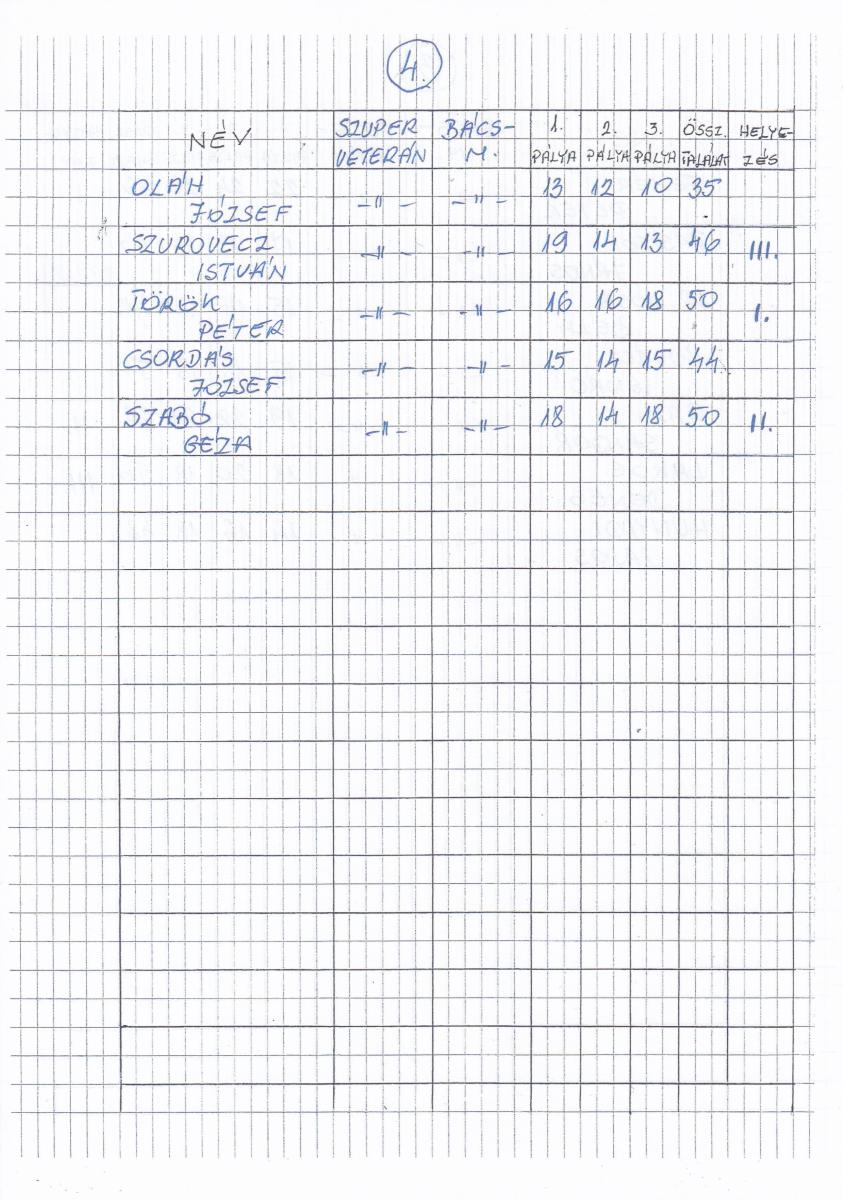 4.
NÉV SZUPER VETERÁN BÁCS-M. 1. PÁLYA 2. PÁLYA 3. PÁLYA ÖSSZ. TALÁLAT HELYEZÉS
OLÁH JÓZSEF -"- -"- 13 12 10 35
SZUROVECZ ISTVÁN -"- -"- 19 14 13 46 III.
TÖRÖK PÉTER -"- -"- 16 16 18 50 I.
CSORDÁS JÓZSEF -"- -"- 15 14 15 44
SZABÓ GÉZA -"- -"- 18 14 18 50 II.